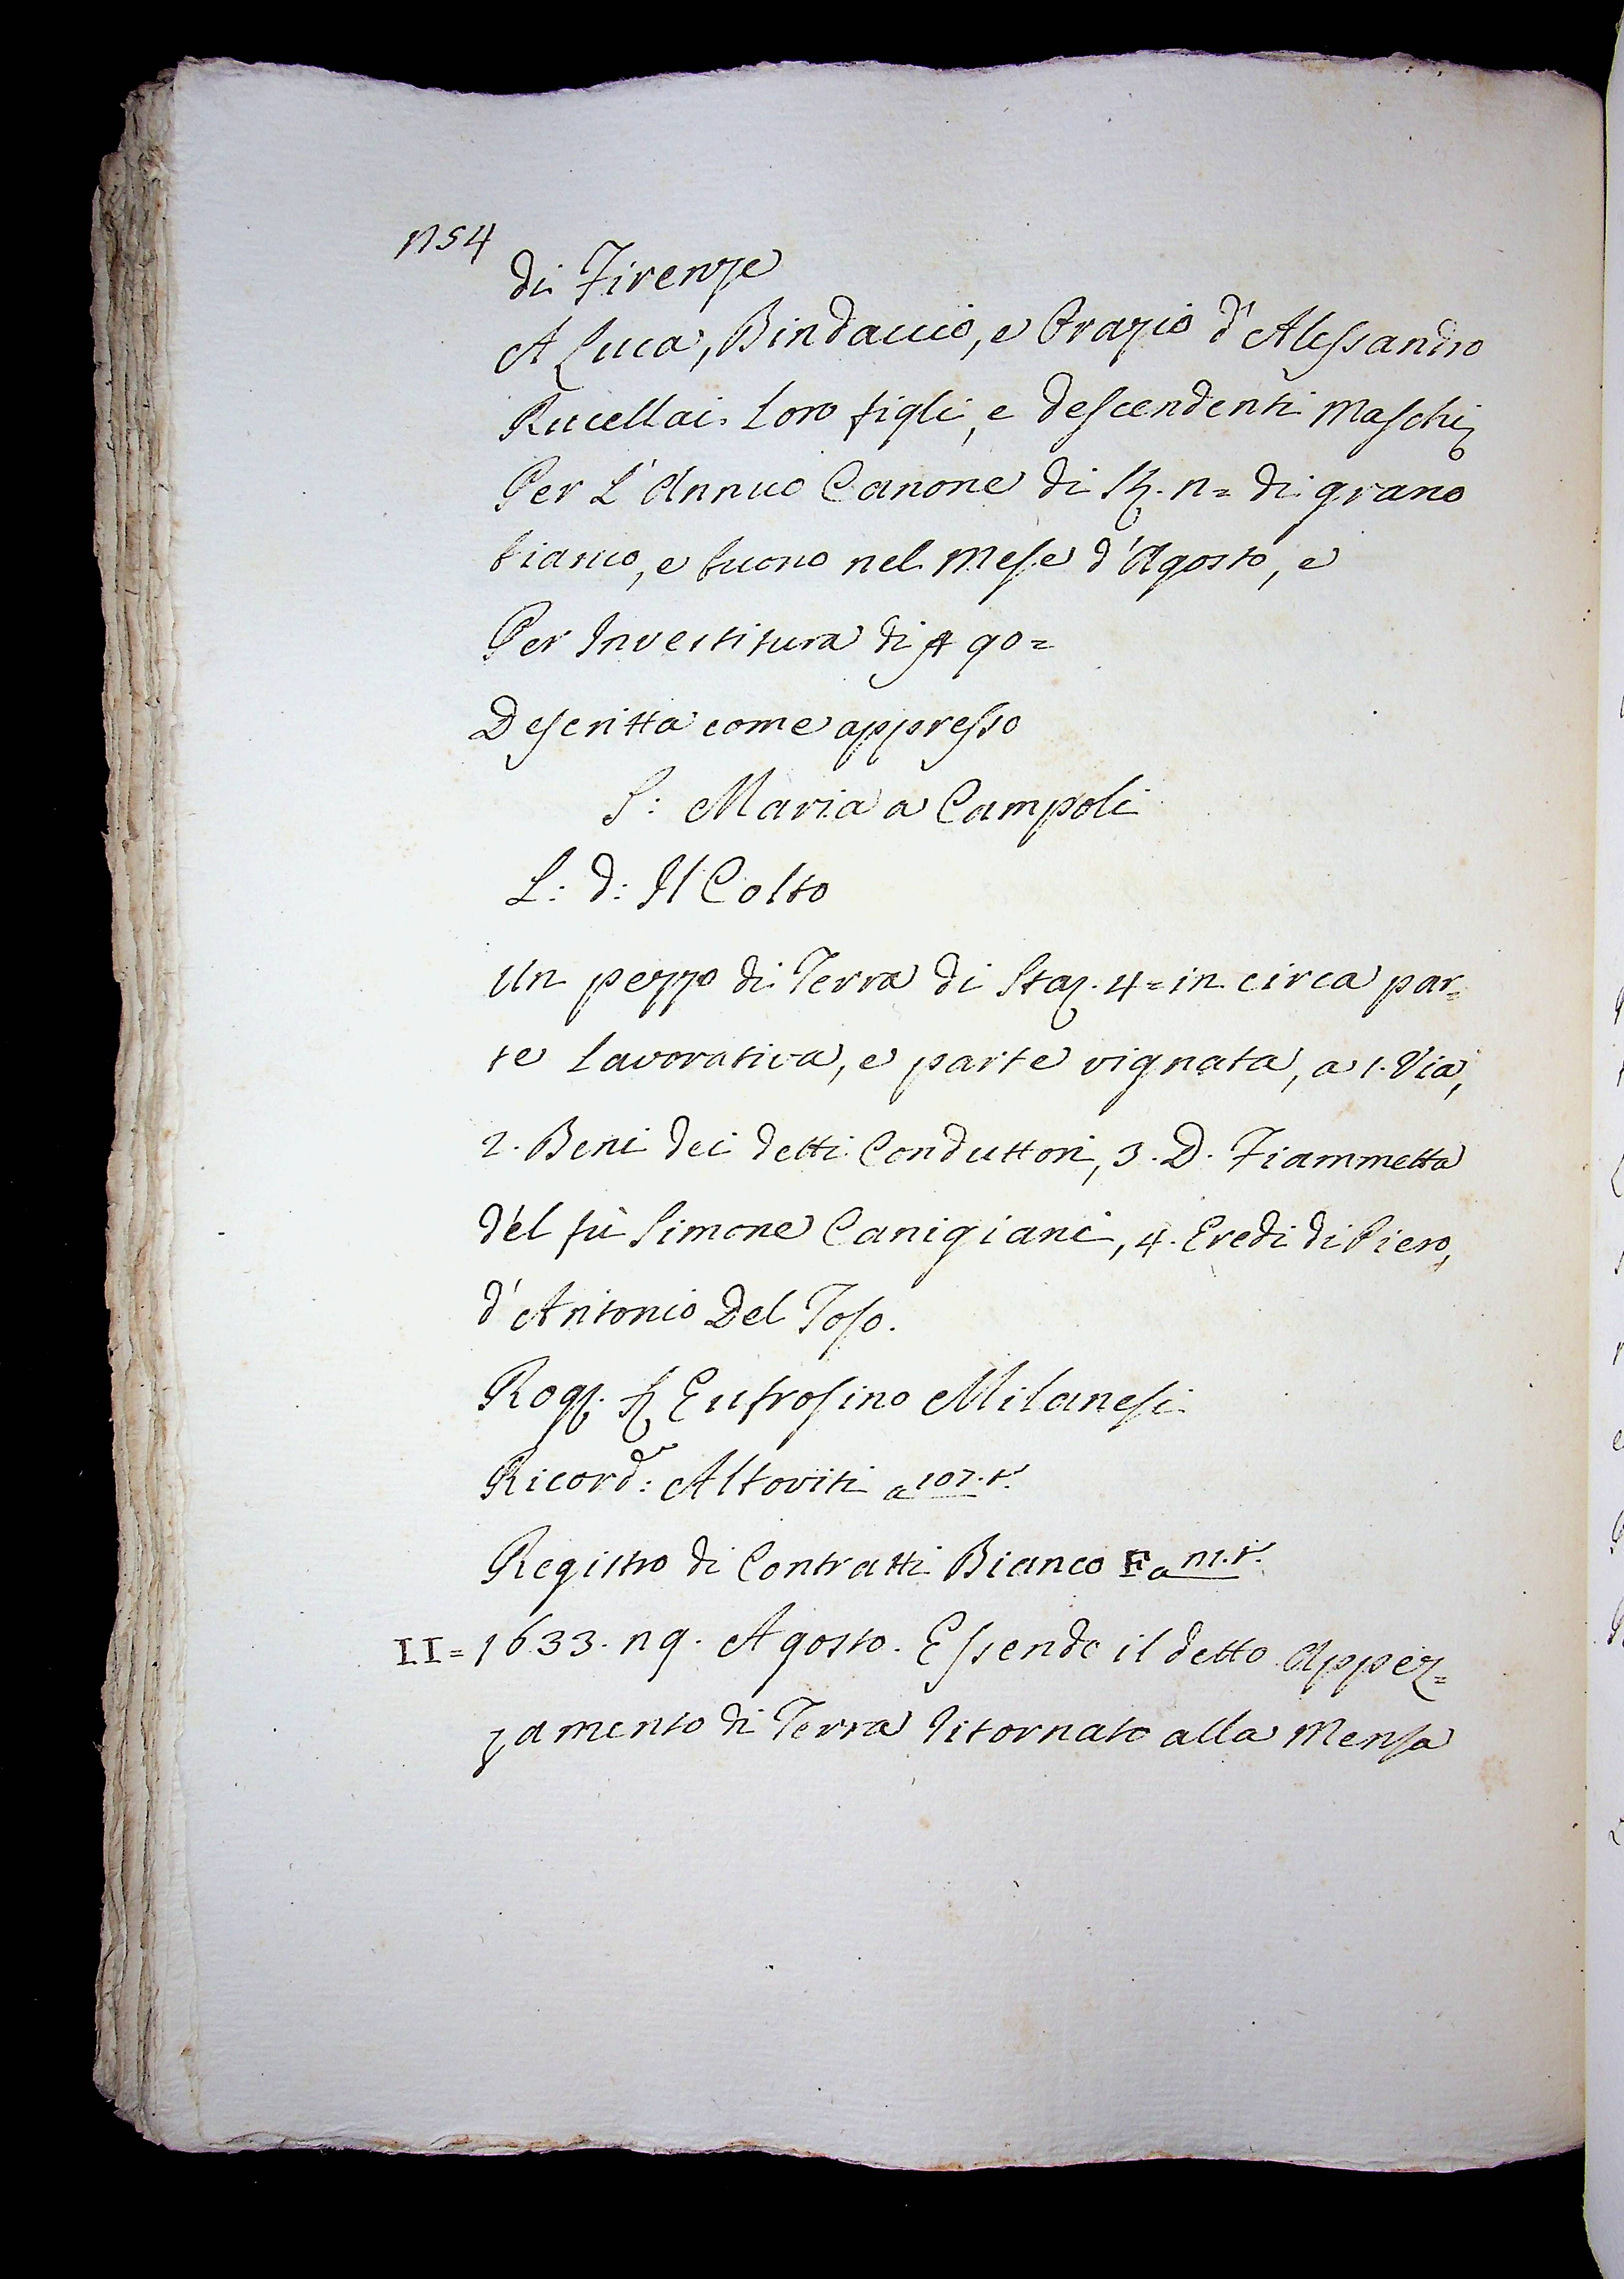 1154
di Firenze
A Luca, Bindaccio, e Orazio d'Alessandro
Rucellai Loro figli, e descendenti Maschi,
Per L'Annuo Canone di St. 11= di grano
bianco, e buono nel Mese d'Agosto, e
Per Investitura di 90=
Descritta come appresso
S: Maria a Campoli
L: d: Il Colto
Un pezzo di Terra di Staj. 4= in circa par=
te Lavorativa, e parte vignata, a 1. Via,
2. Beni dei detti Conduttori, 3. D. Fiammetta
del fù Simone Canigiani, 4. Eredi di Piero,
d'Antonio Del Toso.
Rog. Eufrosino Milanesi
Ricord: Altoviti a 107. t.
Registro di Contratti Bianco F a 111. t.
II= 1633. 19. Agosto. Essendo il detto Appez=
zamento di Terra ritornato alla Mensa